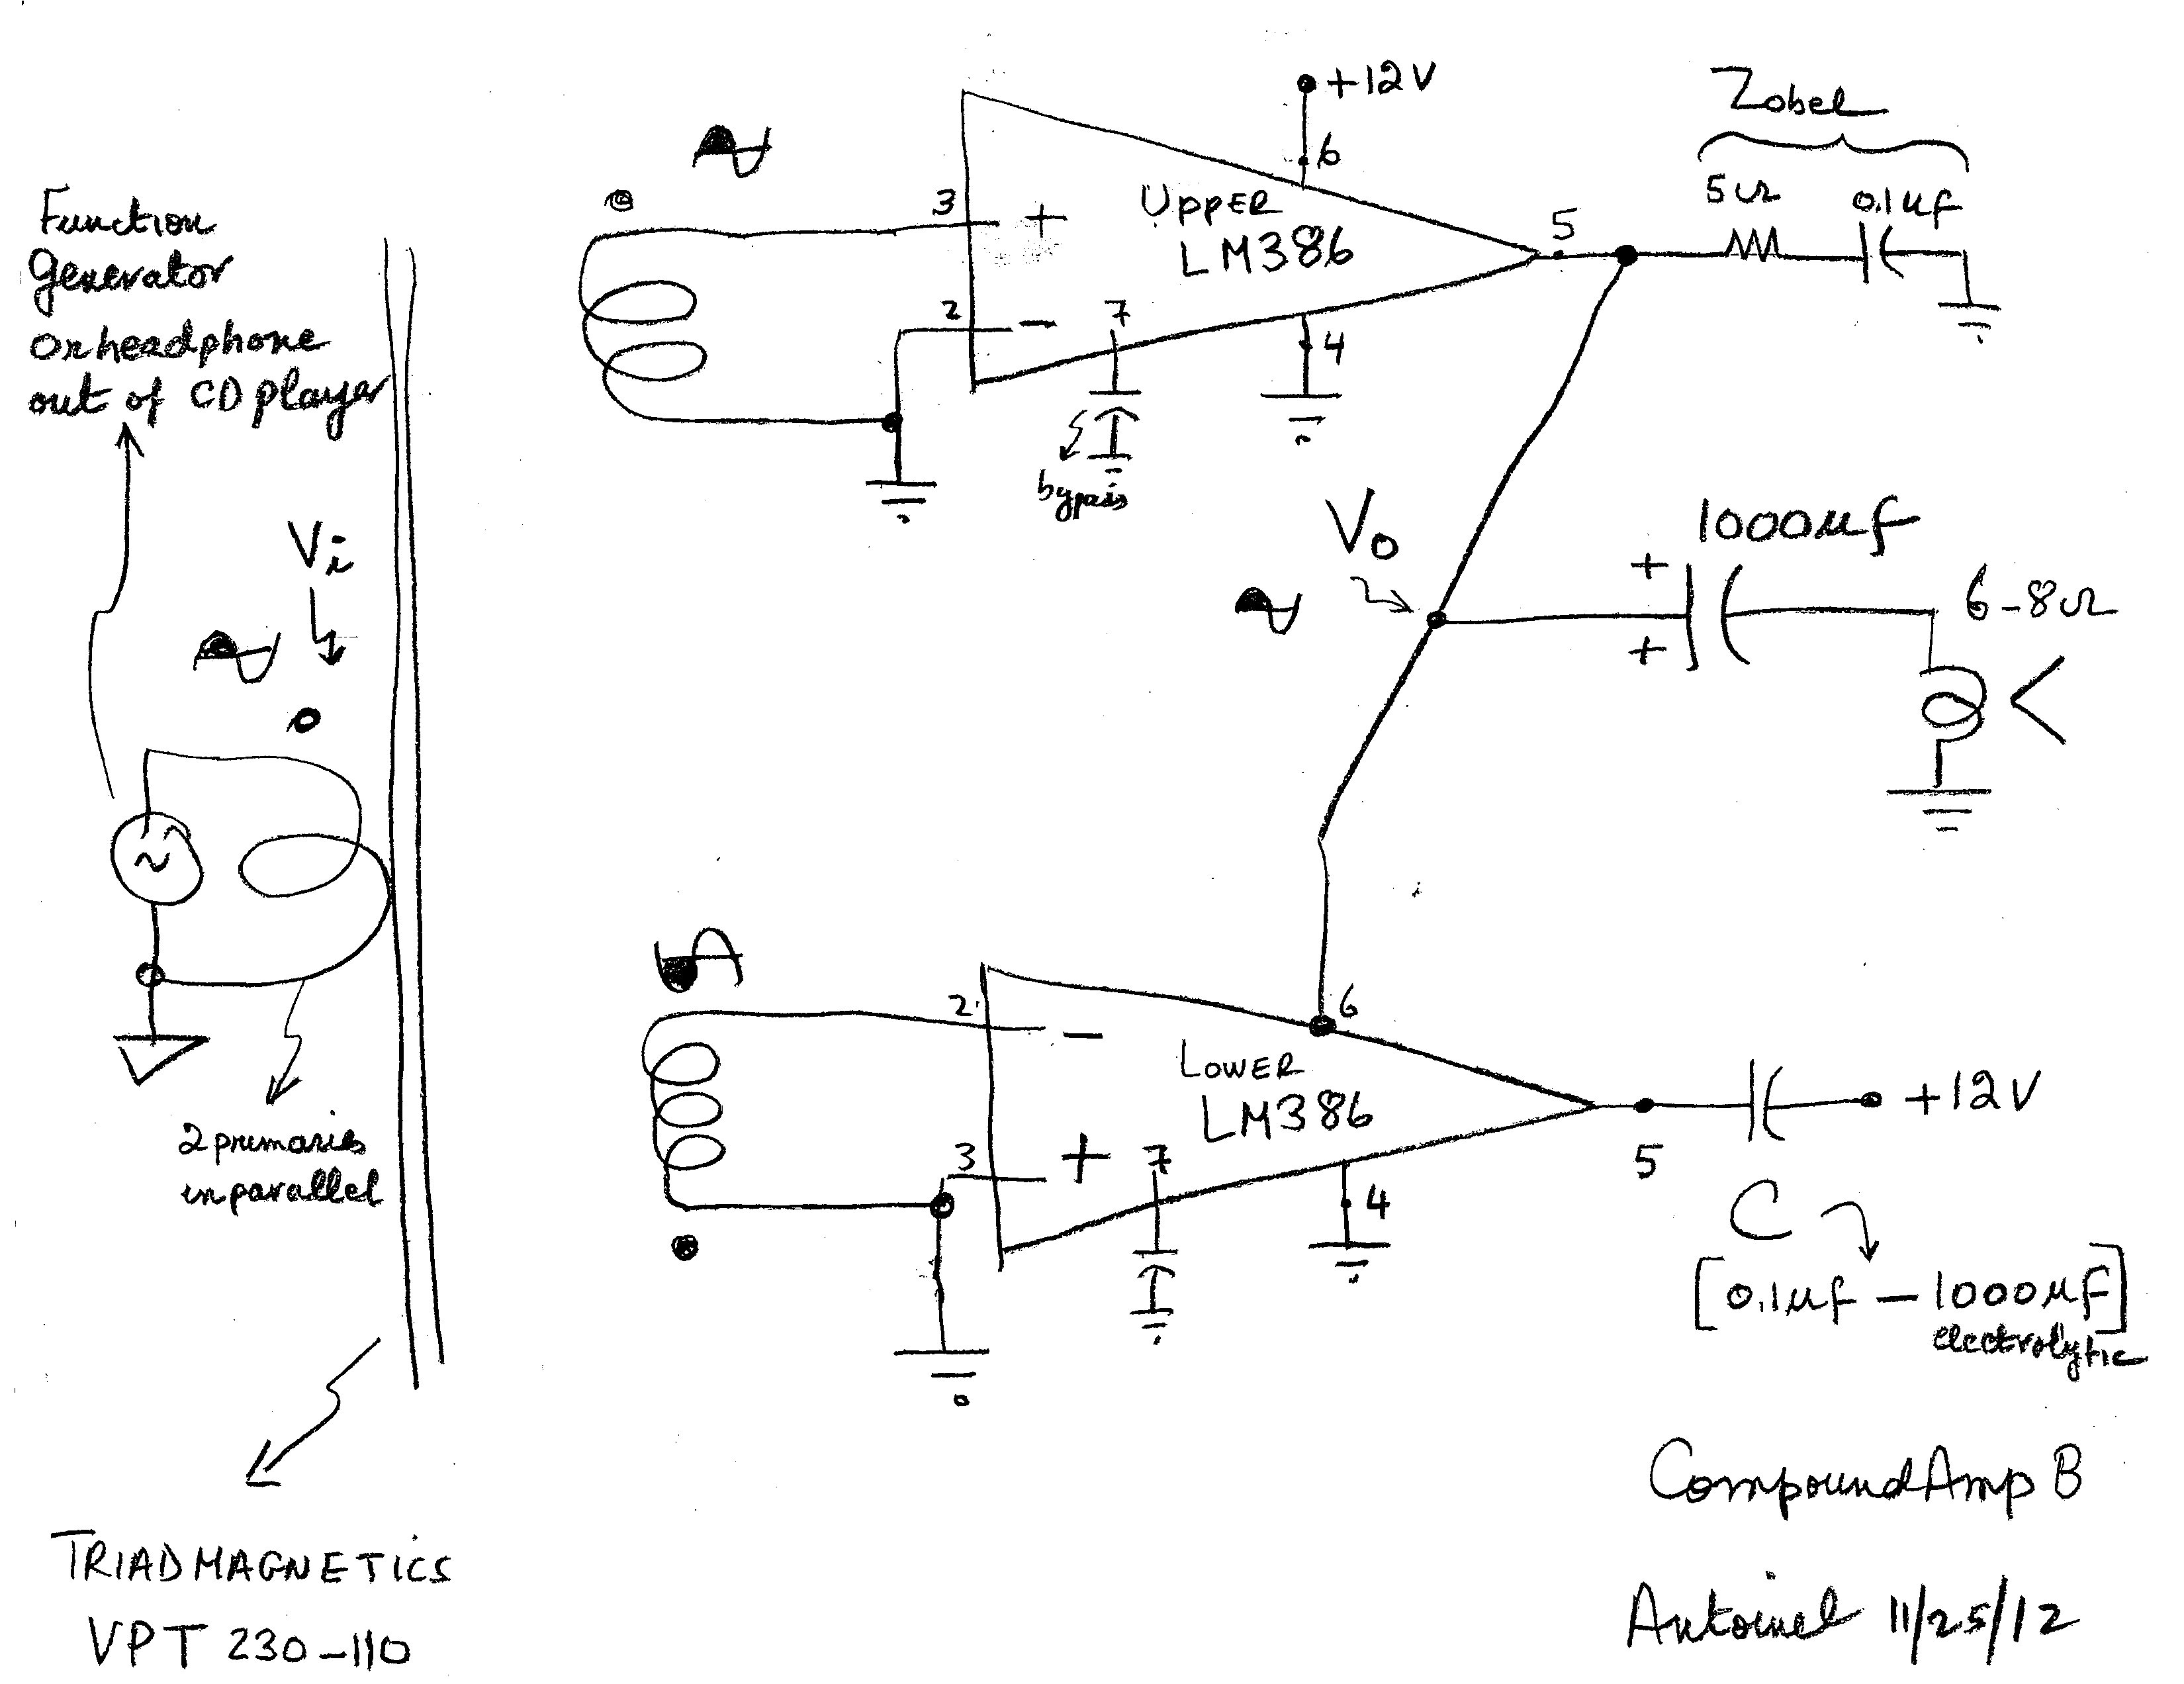 Function
Generator
or headphone
out of CD player
Vi
2 primaries
in parallel
TRIAD MAGNETICS
VPT 230-110
+12V
6
3
+
UPPER
LM386
2
-
7
4
bypass
5
Zobel
5Ω
0.1uf
Vo
1000µf
+
+
6-8Ω
2
-
LOWER
LM386
3
+
7
6
4
5
+12V
C
[0.1µf - 1000µF]
electrolytic
Compound Amp B
Antoinel 11/25/12